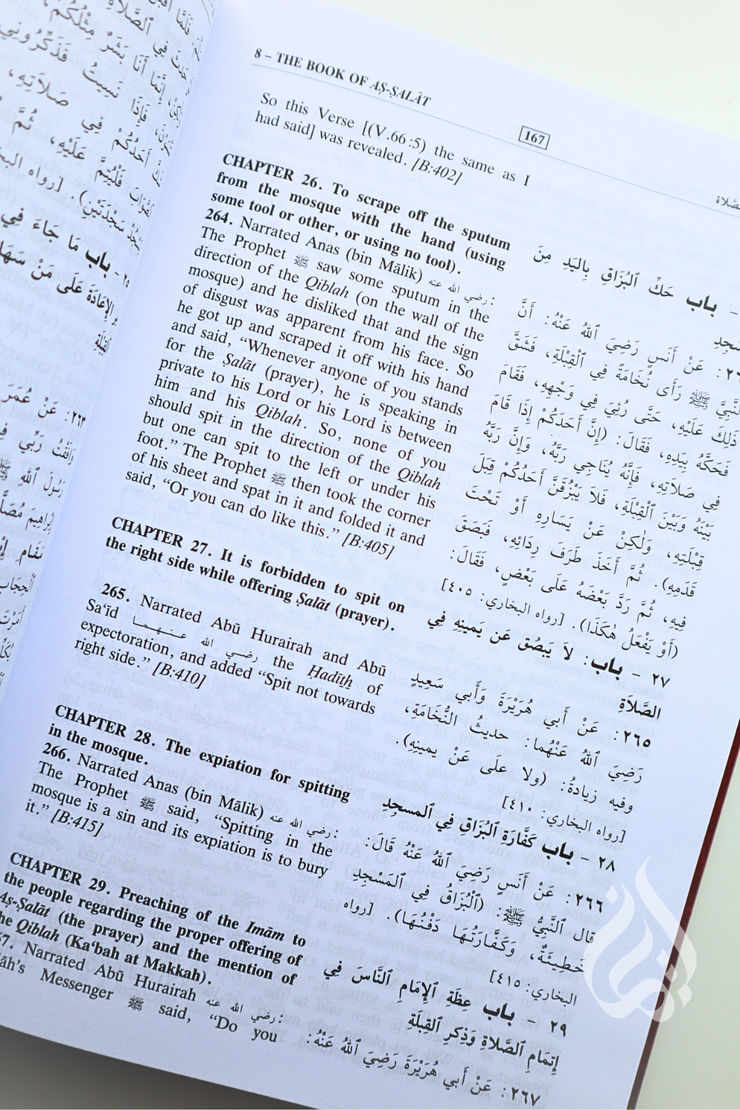 فِي الصَّلَاةِ
إِنَّمَا أَنَا بَشَرٌ مِثْلُكُمْ،
نَسِيتُ فَذَكِّرُونِي
أَحَدُكُمْ فِي صَلَاتِهِ،
فَلْيُتِمَّ عَلَيْهِ، ثُمَّ
سَجْدَتَيْنِ). [رواه
باب مَا جَاءَ فِي
الإِعَادَةَ عَلَى مَنْ سَهَا
٢٦٣: عَنْ عُمَرَ
وَافَقْتُ رَبِّي فِي
رَسُولَ اللهِ
8 – THE BOOK OF AṢ-ṢALĀT
167
So this Verse [(V.66:5) the same as I
had said] was revealed. [B:402]
CHAPTER 26. To scrape off the sputum
from the mosque with the hand (using
some tool or other, or using no tool).
264. Narrated Anas (bin Mālik) رضي الله عنه:
The Prophet ﷺ saw some sputum in the
direction of the Qiblah (on the wall of the
mosque) and he disliked that and the sign
of disgust was apparent from his face. So
he got up and scraped it off with his hand
and said, “Whenever anyone of you stands
for the Ṣalāt (prayer), he is speaking in
private to his Lord or his Lord is between
him and his Qiblah. So, none of you
should spit in the direction of the Qiblah
but one can spit to the left or under his
foot.” The Prophet ﷺ then took the corner
of his sheet and spat in it and folded it and
said, “Or you can do like this.” [B:405]
CHAPTER 27. It is forbidden to spit on
the right side while offering Ṣalāt (prayer).
265. Narrated Abū Hurairah and Abū
Sa‘īd رضي الله عنهما the Ḥadīth of
expectoration, and added “Spit not towards
right side.” [B:410]
CHAPTER 28. The expiation for spitting
in the mosque.
266. Narrated Anas (bin Mālik) رضي الله عنه:
The Prophet ﷺ said, “Spitting in the
mosque is a sin and its expiation is to bury
it.” [B:415]
CHAPTER 29. Preaching of the Imām to
the people regarding the proper offering of
As-Ṣalāt (the prayer) and the mention of
the Qiblah (Ka‘bah at Makkah).
Narrated Abū Hurairah رضي الله عنه:
Messenger ﷺ said, “Do you
باب حَكِّ الْبُزَاقِ بِالْيَدِ مِنَ
عَنْ أَنَسٍ رَضِيَ اللهُ عَنْهُ: أَنَّ
النَّبِيَّ ﷺ رَأَى نُخَامَةً فِي الْقِبْلَةِ، فَشَقَّ
ذَلِكَ عَلَيْهِ، حَتَّى رُئِيَ فِي وَجْهِهِ، فَقَامَ
فَحَكَّهُ بِيَدِهِ، فَقَالَ: (إِنَّ أَحَدَكُمْ إِذَا قَامَ
فِي صَلَاتِهِ، فَإِنَّهُ يُنَاجِي رَبَّهُ، وَإِنَّ رَبَّهُ
بَيْنَهُ وَبَيْنَ الْقِبْلَةِ، فَلَا يَبْزُقَنَّ أَحَدُكُمْ قِبَلَ
قِبْلَتِهِ، وَلَكِنْ عَنْ يَسَارِهِ أَوْ تَحْتَ
قَدَمِهِ). ثُمَّ أَخَذَ طَرَفَ رِدَائِهِ، فَبَصَقَ
فِيهِ، ثُمَّ رَدَّ بَعْضَهُ عَلَى بَعْضٍ، فَقَالَ:
(أَوْ يَفْعَلُ هَكَذَا). [رواه البخاري: ٤٠٥]
٢٧ - باب: لَا يَبْصُقْ عَنْ يَمِينِهِ فِي
الصَّلَاةِ
٢٦٥: عَنْ أَبِي هُرَيْرَةَ وَأَبِي سَعِيدٍ
رَضِيَ اللهُ عَنْهُمَا: حَدِيثُ النُّخَامَةِ،
وفيه زيادةُ: (ولا عَلَى عَنْ يَمِينِهِ).
[رواه البخاري: ٤١٠]
٢٨ - باب كَفَّارَةِ الْبُزَاقِ فِي المسجِدِ
٢٦٦: عَنْ أَنَسٍ رَضِيَ اللهُ عَنْهُ قَالَ:
قال النَّبِيُّ ﷺ: (الْبُزَاقُ فِي الْمَسْجِدِ
خَطِيئَةٌ، وَكَفَّارَتُهَا دَفْنُهَا). [رواه
البخاري: ٤١٥]
٢٩ - باب عِظَةِ الإِمَامِ النَّاسَ فِي
إِتمَامِ الصَّلَاةِ وَذِكرِ القِبلَةِ
٢٦٧: عَنْ أَبِي هُرَيْرَةَ رَضِيَ اللهُ عَنْهُ: